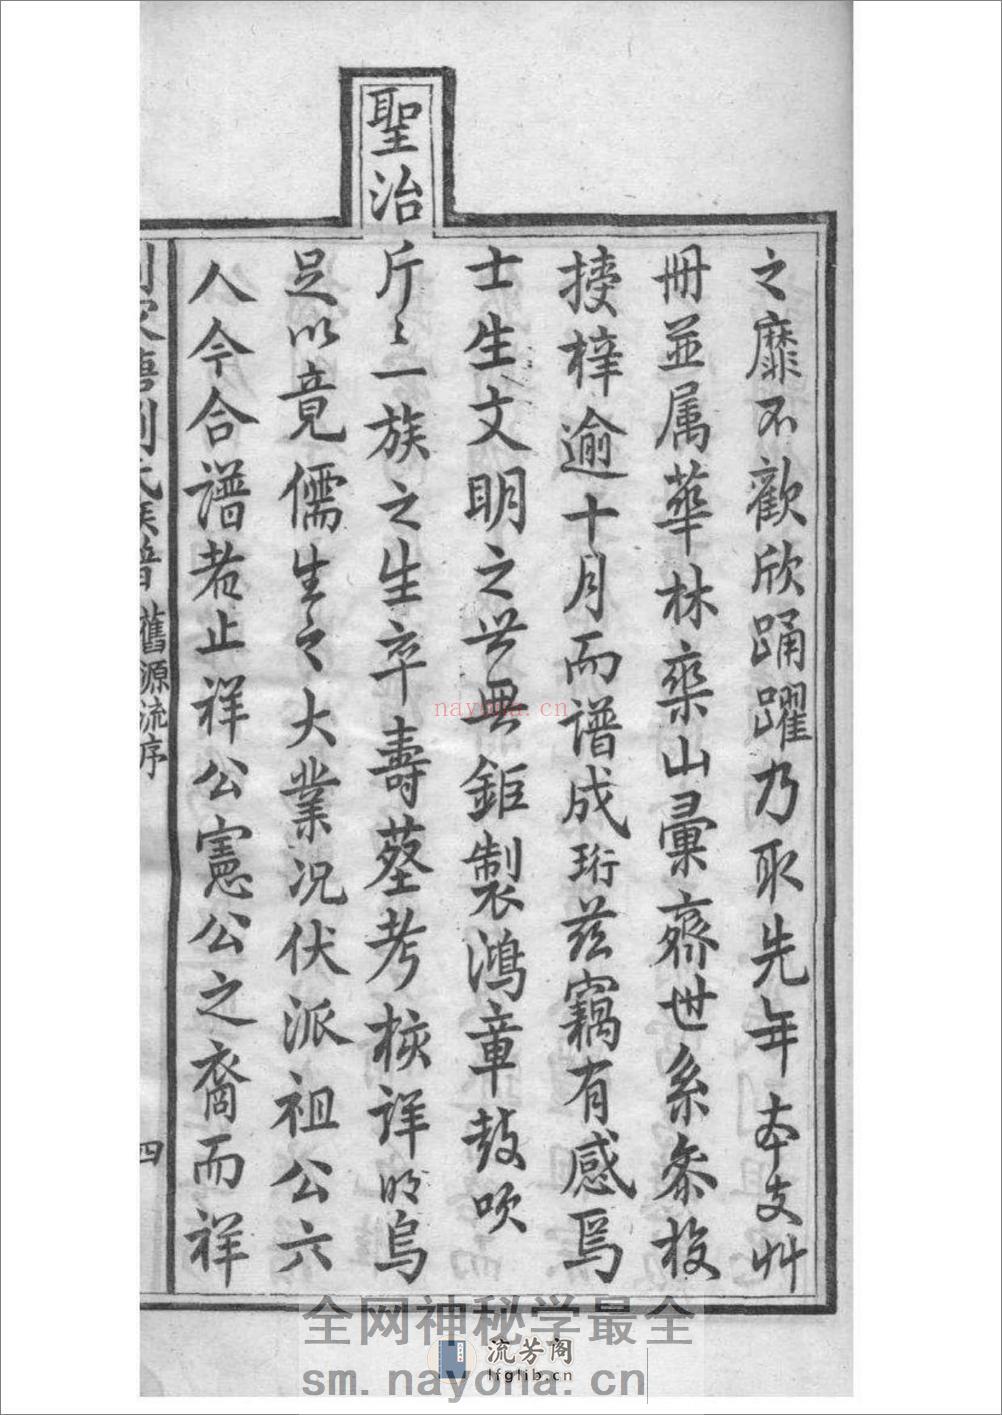 之靡不歡欣踴躍乃取先年本支艸
冊並属華林欒山彙齊世系叅校
㨗梓逾十月而譜成珩茲竊有感焉
士生文明之世無鉅製鴻章鼓吹
聖治
斤〻一族之生卒壽塟考核詳明烏
足以竟儒生之大業况伏派祖公六
人今合譜者止祥公憲公之裔而祥
劉氏族譜
舊源流序
四
nayona.cn
全网神秘学最全
流芳阁
lfglib.cn
sm.nayona.cn